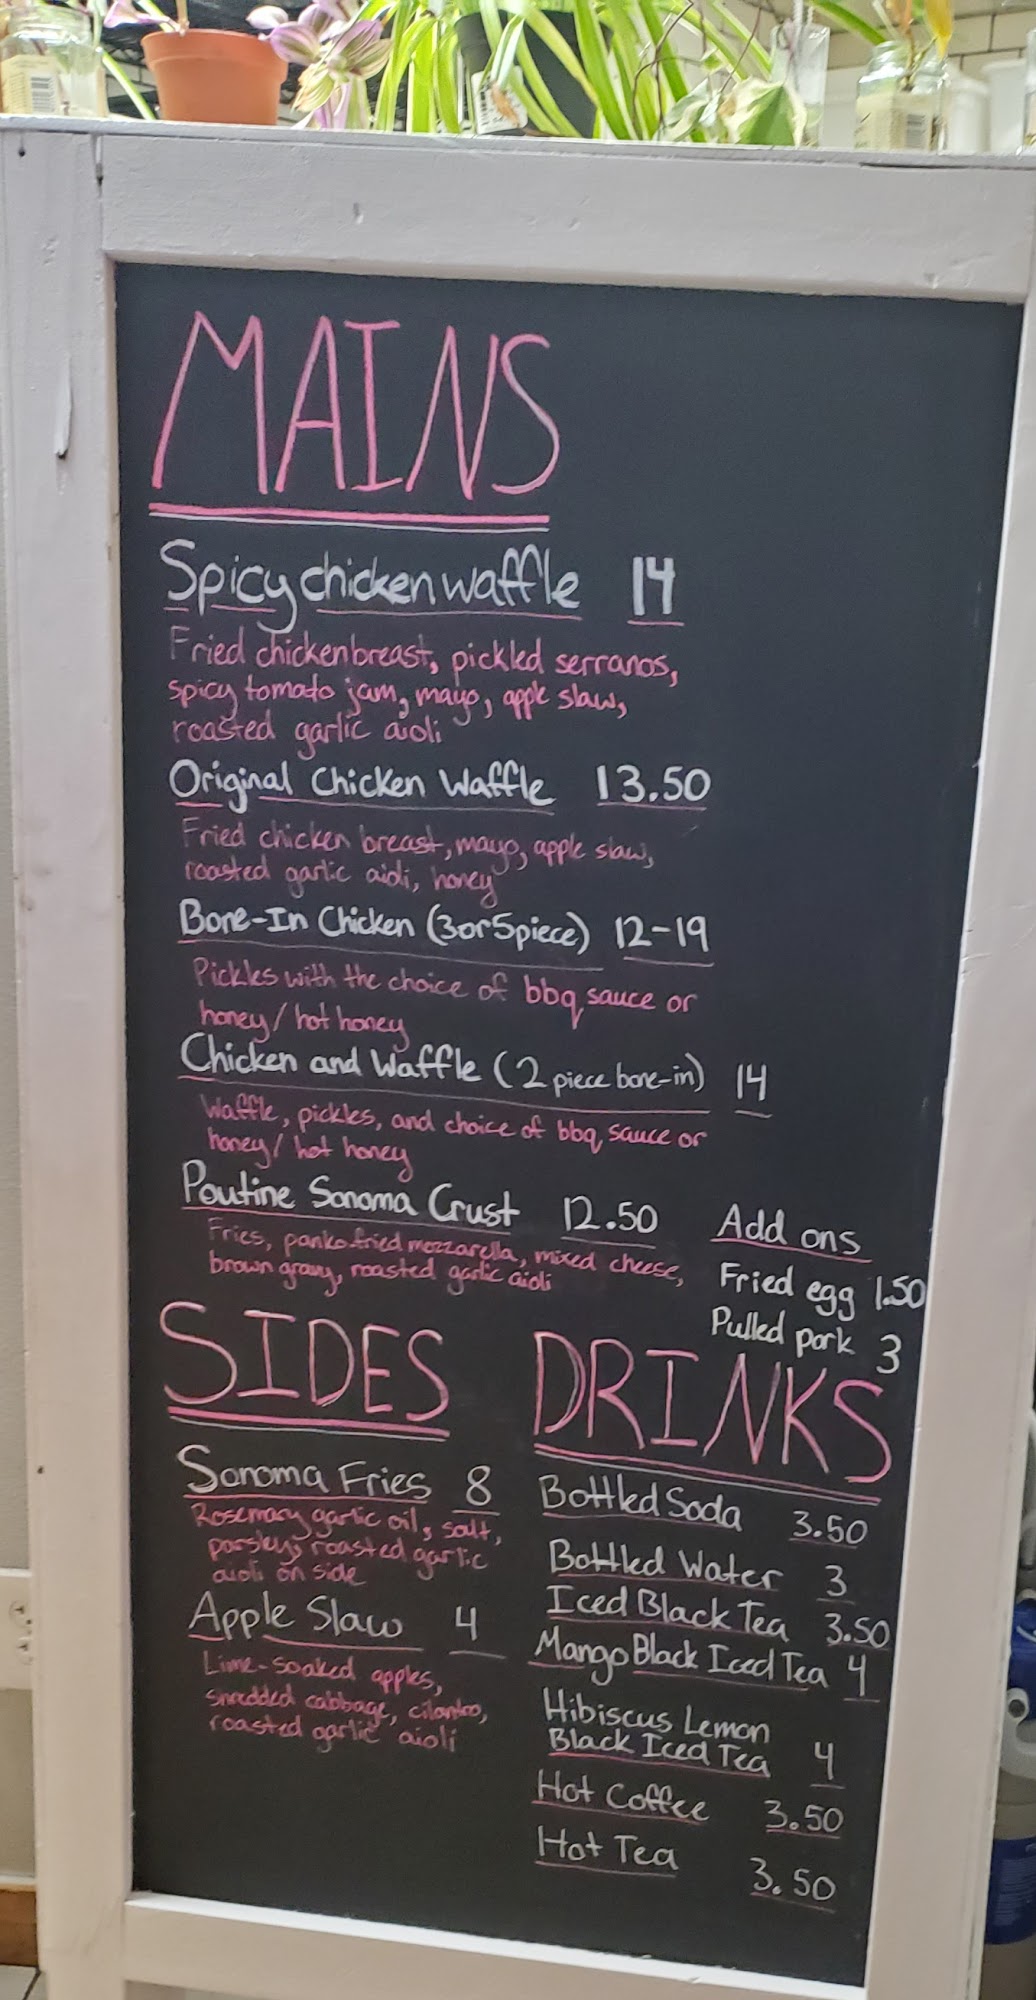 MAINS
Spicy chicken waffle 14
Fried chicken breast, pickled serranos,
spicy tomato jam, mayo, apple slaw,
roasted garlic aioli
Original Chicken Waffle 13.50
Fried chicken breast, mayo, apple slaw,
roasted garlic aioli, honey
Bone-In Chicken (3 or 5 piece) 12-19
Pickles with the choice of bbq sauce or
honey / hot honey
Chicken and Waffle (2 piece bone-in) 14
Waffle, pickles, and choice of bbq sauce or
honey / hot honey
Poutine Sonoma Crust 12.50
Fries, panko fried mozzarella, mixed cheese,
brown gravy, roasted garlic aioli
Add ons
Fried egg 1.50
Pulled pork 3
SIDES
Sonoma Fries 8
Rosemary garlic oil, salt,
parsley, roasted garlic
aioli on side
Apple Slaw 4
Lime-soaked apples,
shredded cabbage, cilantro,
roasted garlic aioli
DRINKS
Bottled Soda 3.50
Bottled Water 3
Iced Black Tea 3.50
Mango Black Iced Tea 4
Hibiscus Lemon
Black Iced Tea 4
Hot Coffee 3.50
Hot Tea 3.50